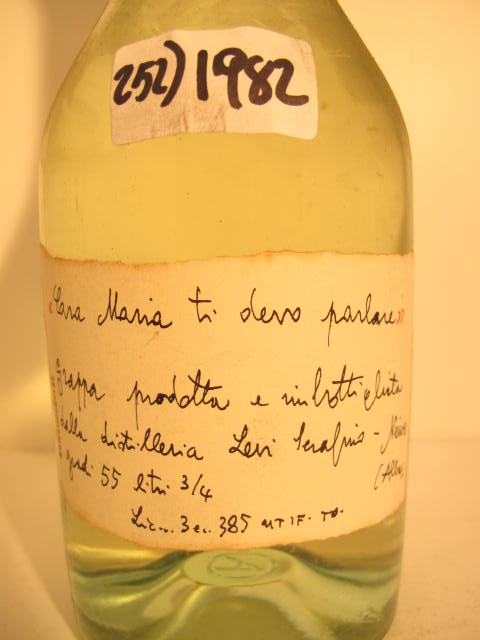 252) 1982
"Cara Maria ti devo parlare"
Grappa prodotta e imbottigliata
dalla distilleria Levi Serafino - Neive
gradi 55 litri 3/4 (Alba)
Lic. 3 e. 385 UTIF. TO.